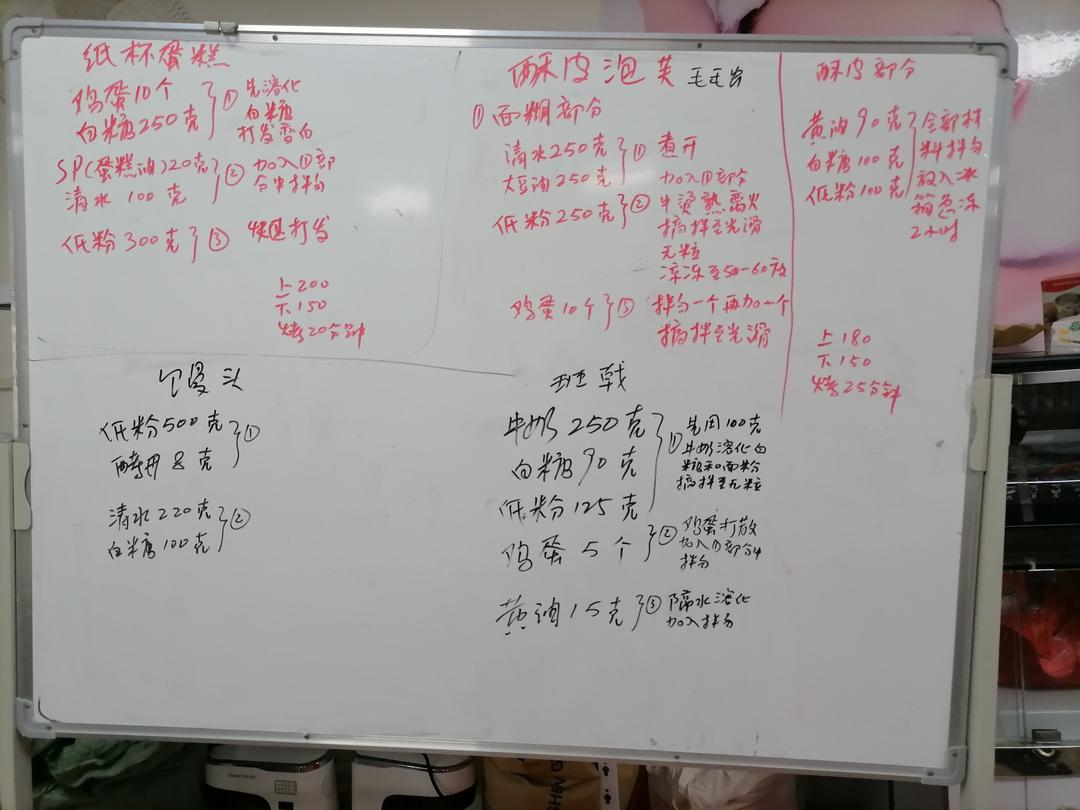 纸杯蛋糕
鸡蛋10个
白糖250克
①
先溶化
白糖
打发蛋白
SP(蛋糕油)20克
清水100克
②
加入①部
分中拌匀
低粉300克
③
快速打发
上200
下150
烤20分钟
酥皮泡芙
①面糊部分
清水250克
大豆油250克
①
煮开
低粉250克
②
加入①部分
中烫熟离火
搞拌至光滑
无粒
凉冻至50-60度
鸡蛋10个
③
拌匀一个再加一个
搞拌至光滑
酥皮部分
黄油90克
白糖100克
低粉100克
全部材
料拌匀
放入冰
箱急冻
2小时
上180
下150
烤25分钟
馒头
低粉500克
酵母8克
①
清水220克
白糖100克
②
班戟
牛奶250克
白糖90克
低粉125克
①
先用100克
牛奶溶化白
糖和面粉
搞拌至无粒
鸡蛋5个
②
鸡蛋打散
加入①部分中
拌匀
黄油15克
③
隔水溶化
加入拌匀